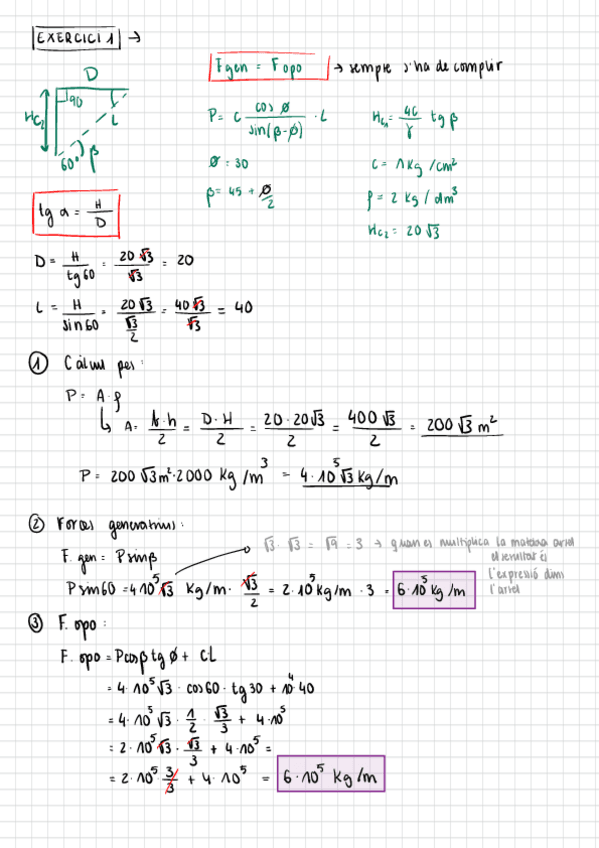 EXERCICI 1 →
Fgen = Fopo → sempre s'ha de complir
D
90
L
Hc2
60° β
P = c cos ø / sin(β-ø) · L
Hc1 = 4c / γ tg β
ø = 30
c = 1 kg/cm²
β = 45 + ø/2
ρ = 2 kg/dm³
Hc2 = 20√3
tg α = H / D
D = H / tg60 = 20√3 / √3 = 20
L = H / sin60 = 20√3 / √3/2 = 40√3 / √3 = 40
① Càlcul pes:
P = A · ρ
↳ A = b·h / 2 = D·H / 2 = 20·20√3 / 2 = 400√3 / 2 = 200√3 m²
P = 200√3 m² · 2000 kg/m³ = 4·10⁵√3 kg/m
② Forces generatrius:
√3 · √3 = √9 = 3 → quan es multiplica la mateixa arrel
el resultat és
F. gen = P sin β
l'expressió dins
l'arrel
P sin60 = 4·10⁵√3 kg/m · √3/2 = 2·10⁵ kg/m · 3 = 6·10⁵ kg/m
③ F. opo:
F. opo = P cos β tg ø + CL
= 4·10⁵√3 · cos60 · tg30 + 10⁴·40
= 4·10⁵√3 · 1/2 · √3/3 + 4·10⁵
= 2·10⁵√3 · √3/3 + 4·10⁵ =
= 2·10⁵ 3/3 + 4·10⁵ = 6·10⁵ kg/m